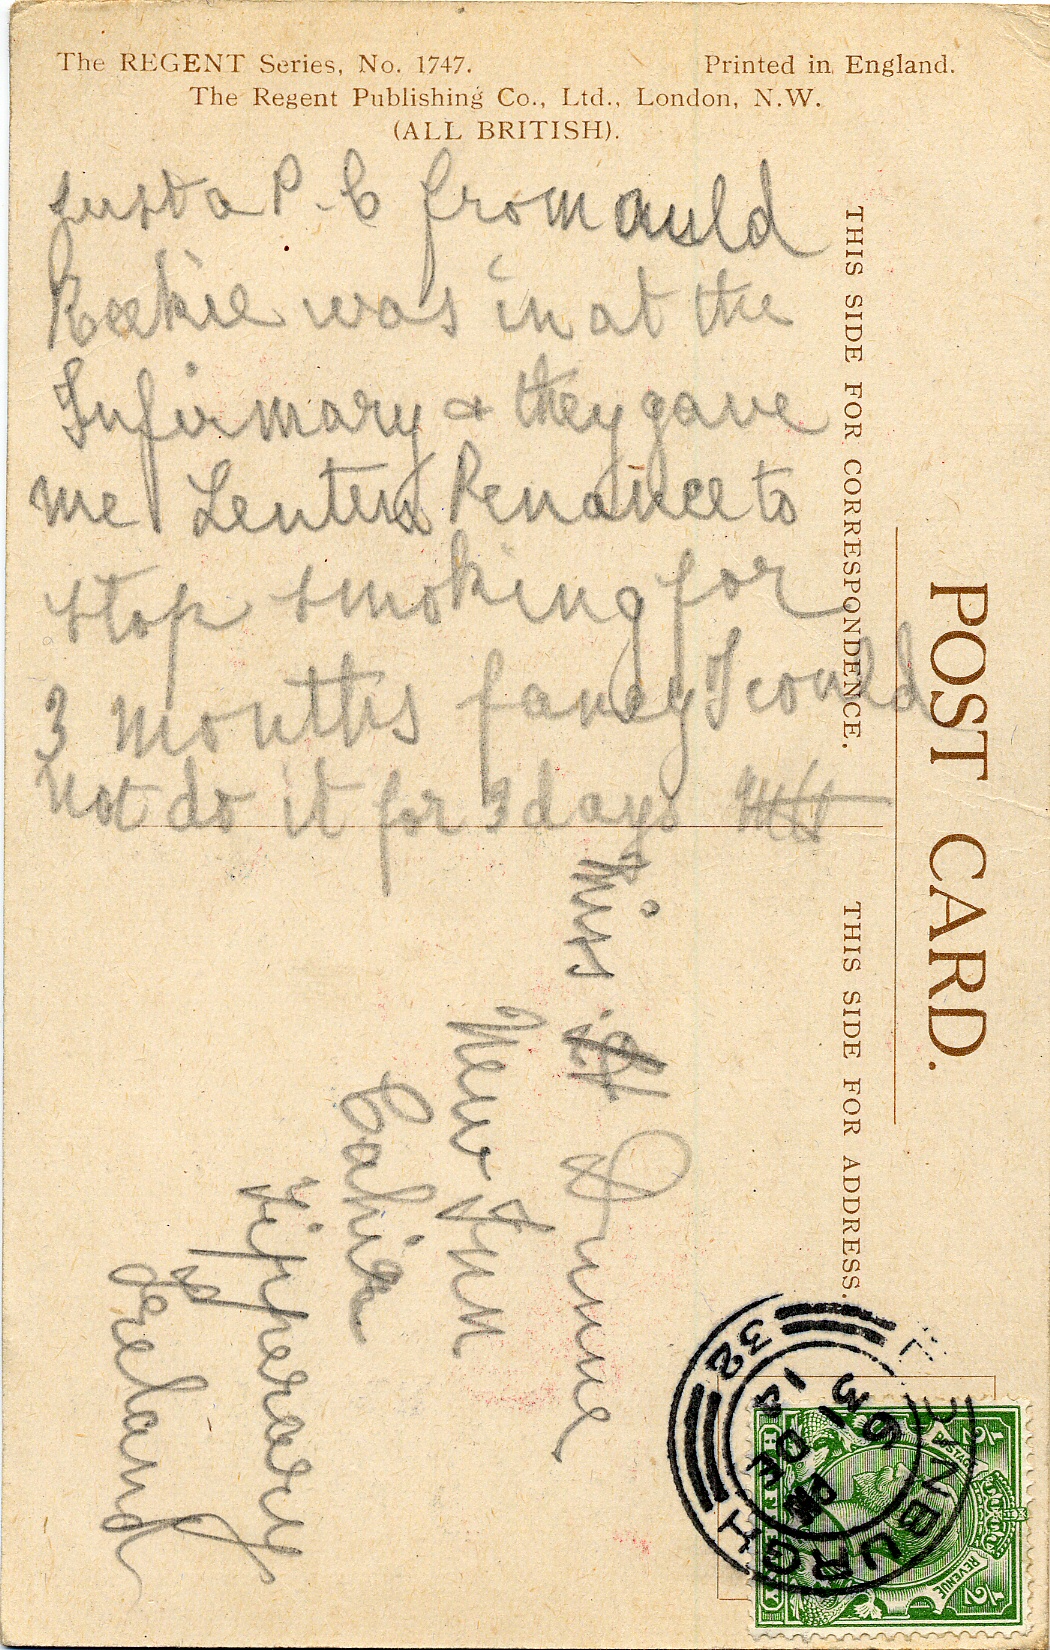 The REGENT Series, No. 1747. Printed in England.
The Regent Publishing Co., Ltd., London, N.W.
(ALL BRITISH).
Just a P.C from auld
was in at the
Infirmary & they gave
me Lenten Penance to
stop smoking for
3 months fancy I could
not do it for 3 days
THIS SIDE FOR CORRESPONDENCE.
POST CARD.
THIS SIDE FOR ADDRESS.
Miss Dunne
New Inn
Cahir
Tipperary
Ireland
EDINBURGH
32
POSTAGE
REVENUE
1/2
1/2